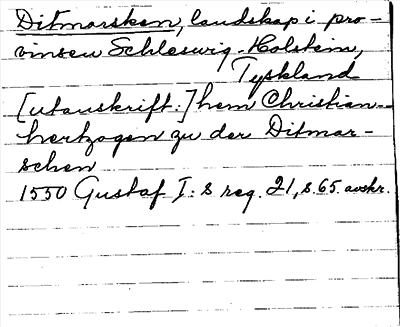 Ditmarsken, landskap i pro-
vinsen Schleswig-Holstein,
Tyskland
[utanskrift:] hern Christian
hertzogen zu der Ditmar-
schen
1550 Gustaf I:s reg. 21, s. 65. avskr.